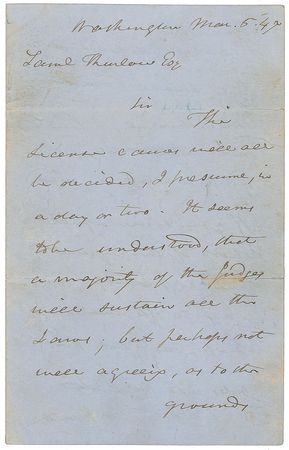 Washington Mar. 5. 47
Saml Thurlow Esq
Sir The
License cases will all
be decided, I presume, in
a day or two. It seems
to be understood, that
a majority of the Judges
will sustain all the
Laws; but perhaps not
well agreeing, as to the
grounds